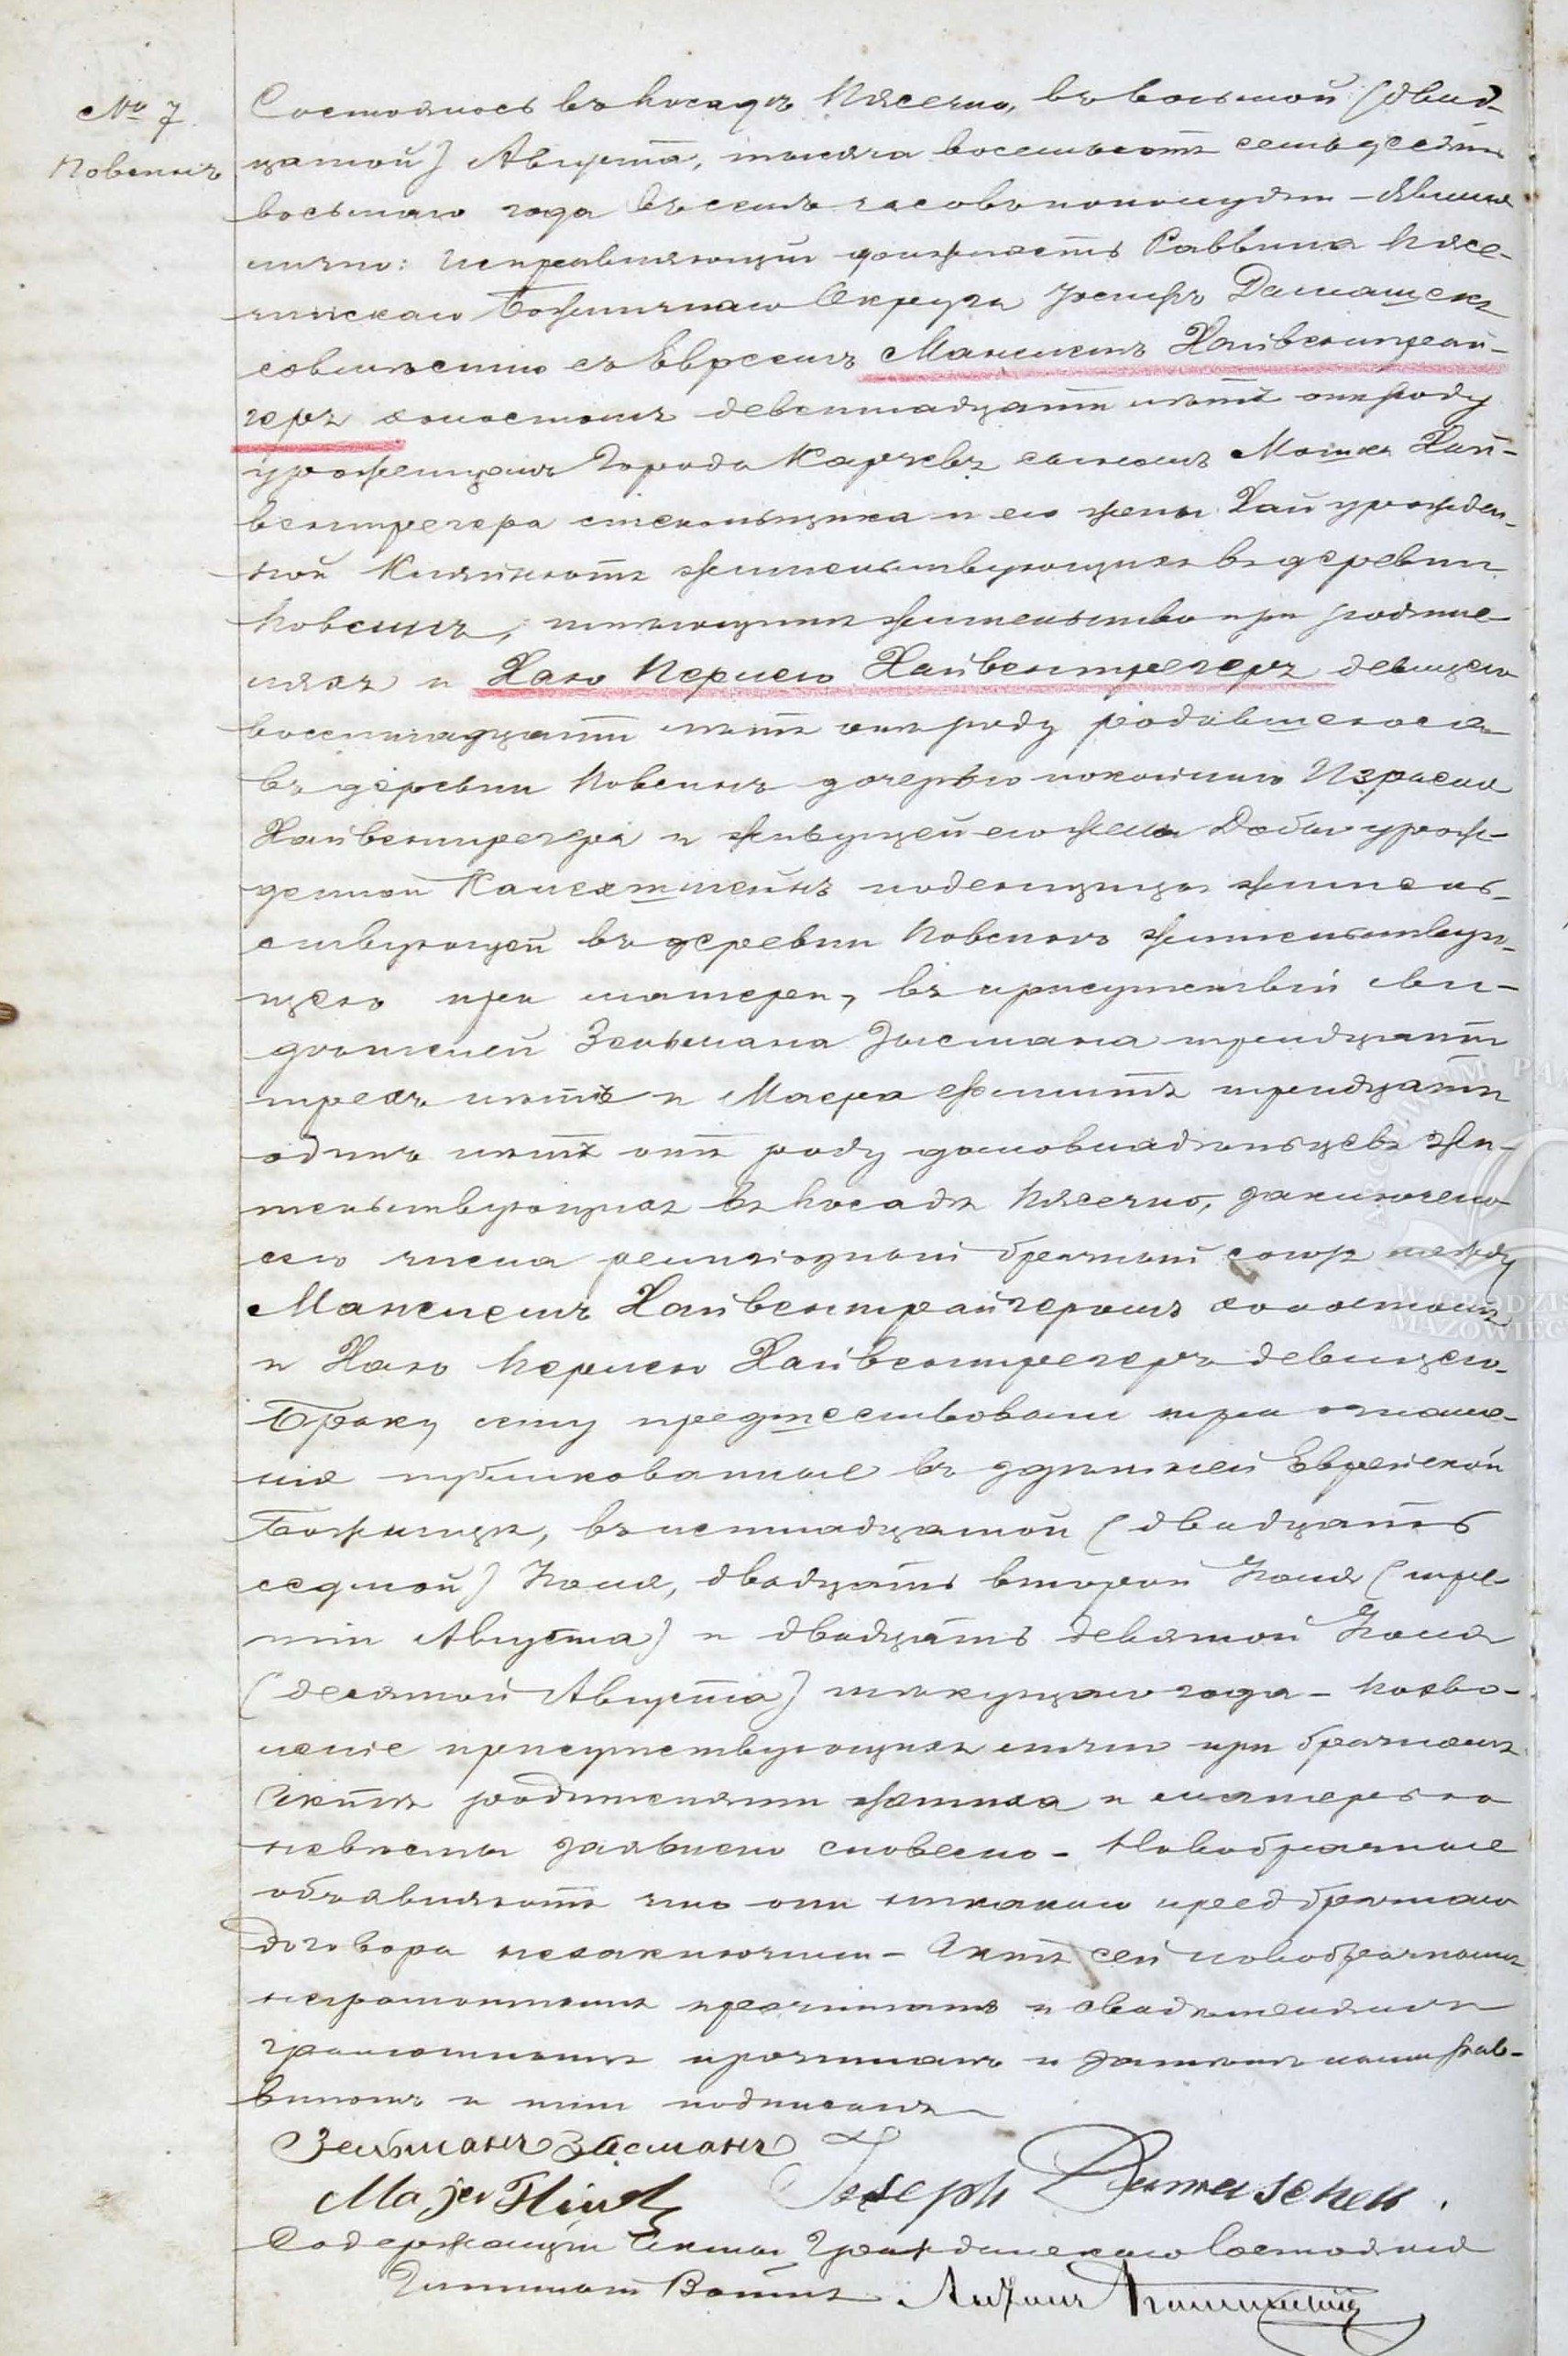 № 7
Повсинъ
Состоялось въ Посадѣ Пясечно, въ восьмой (двад-
цатой) Августа, тысяча восемьсотъ семьдесятъ
восьмаго года въ семь часовъ пополудни – Явился
лично: исправляющій должность Раввина Пясе-
чинскаго Божничнаго Округа Іосифъ Дамашекъ
совмѣстно съ Евреемъ Манелемъ Хайвентрей-
геръ холостымъ девятнадцати лѣтъ отъ роду
урожденцемъ Города Карчевъ сыномъ Мошка Хай-
вентрегера стекольщика и его жены Хаи урожден-
ной жительствующихъ въ деревни
Повсинъ, имѣющимъ жительство при родите-
ляхъ и Хаю Перлею Хайвентрегеръ девицею
восемнадцати лѣтъ отъ роду родившеюся
въ деревни Повсинъ дочерью покойнаго Израеля
Хайвентрегера и живущей его жены Добы урож-
денной поденщицы житель-
ствующей въ деревни Повсинъ жительствую-
щею при матери, въ присутствіи сви-
дѣтелей Зельмана Зысмана тридцати
трехъ лѣтъ и Маера тридцати
одинъ лѣтъ отъ роду домовладѣльцевъ жи-
тельствующихъ въ Посадѣ Пясечно, заключено
сего числа религіозный брачный союзъ между
Манелемъ Хайвентрайгеромъ холостымъ
и Хаю Перлею Хайвентрегеръ девицею
Браку сему предшествовали три оглаше-
нія публикованные въ здѣшней Еврейской
Божницѣ, въ пятнадцатой (двадцать
седмой) Іюля, двадцать второй Іюля (тре-
тій Августа) и двадцать девятой Іюля
(десятой Августа) текущаго года – Позво-
леніе присутствующихъ лично при брачномъ
Актѣ родителями жениха и матерью
невѣсты заявлено словесно – Новобрачные
объявляютъ что они никакаго предбрачнаго
договора незаключили – Актъ сей новобрачнымъ
неграмотнымъ прочитанъ и свидѣтелямъ
грамотнымъ прочитанъ и затѣмъ нами Рав-
виномъ и ими подписанъ
Зельманъ Зысманъ
Joseph Damaschek
Содержащій Акты Гражданскаго Состоянія